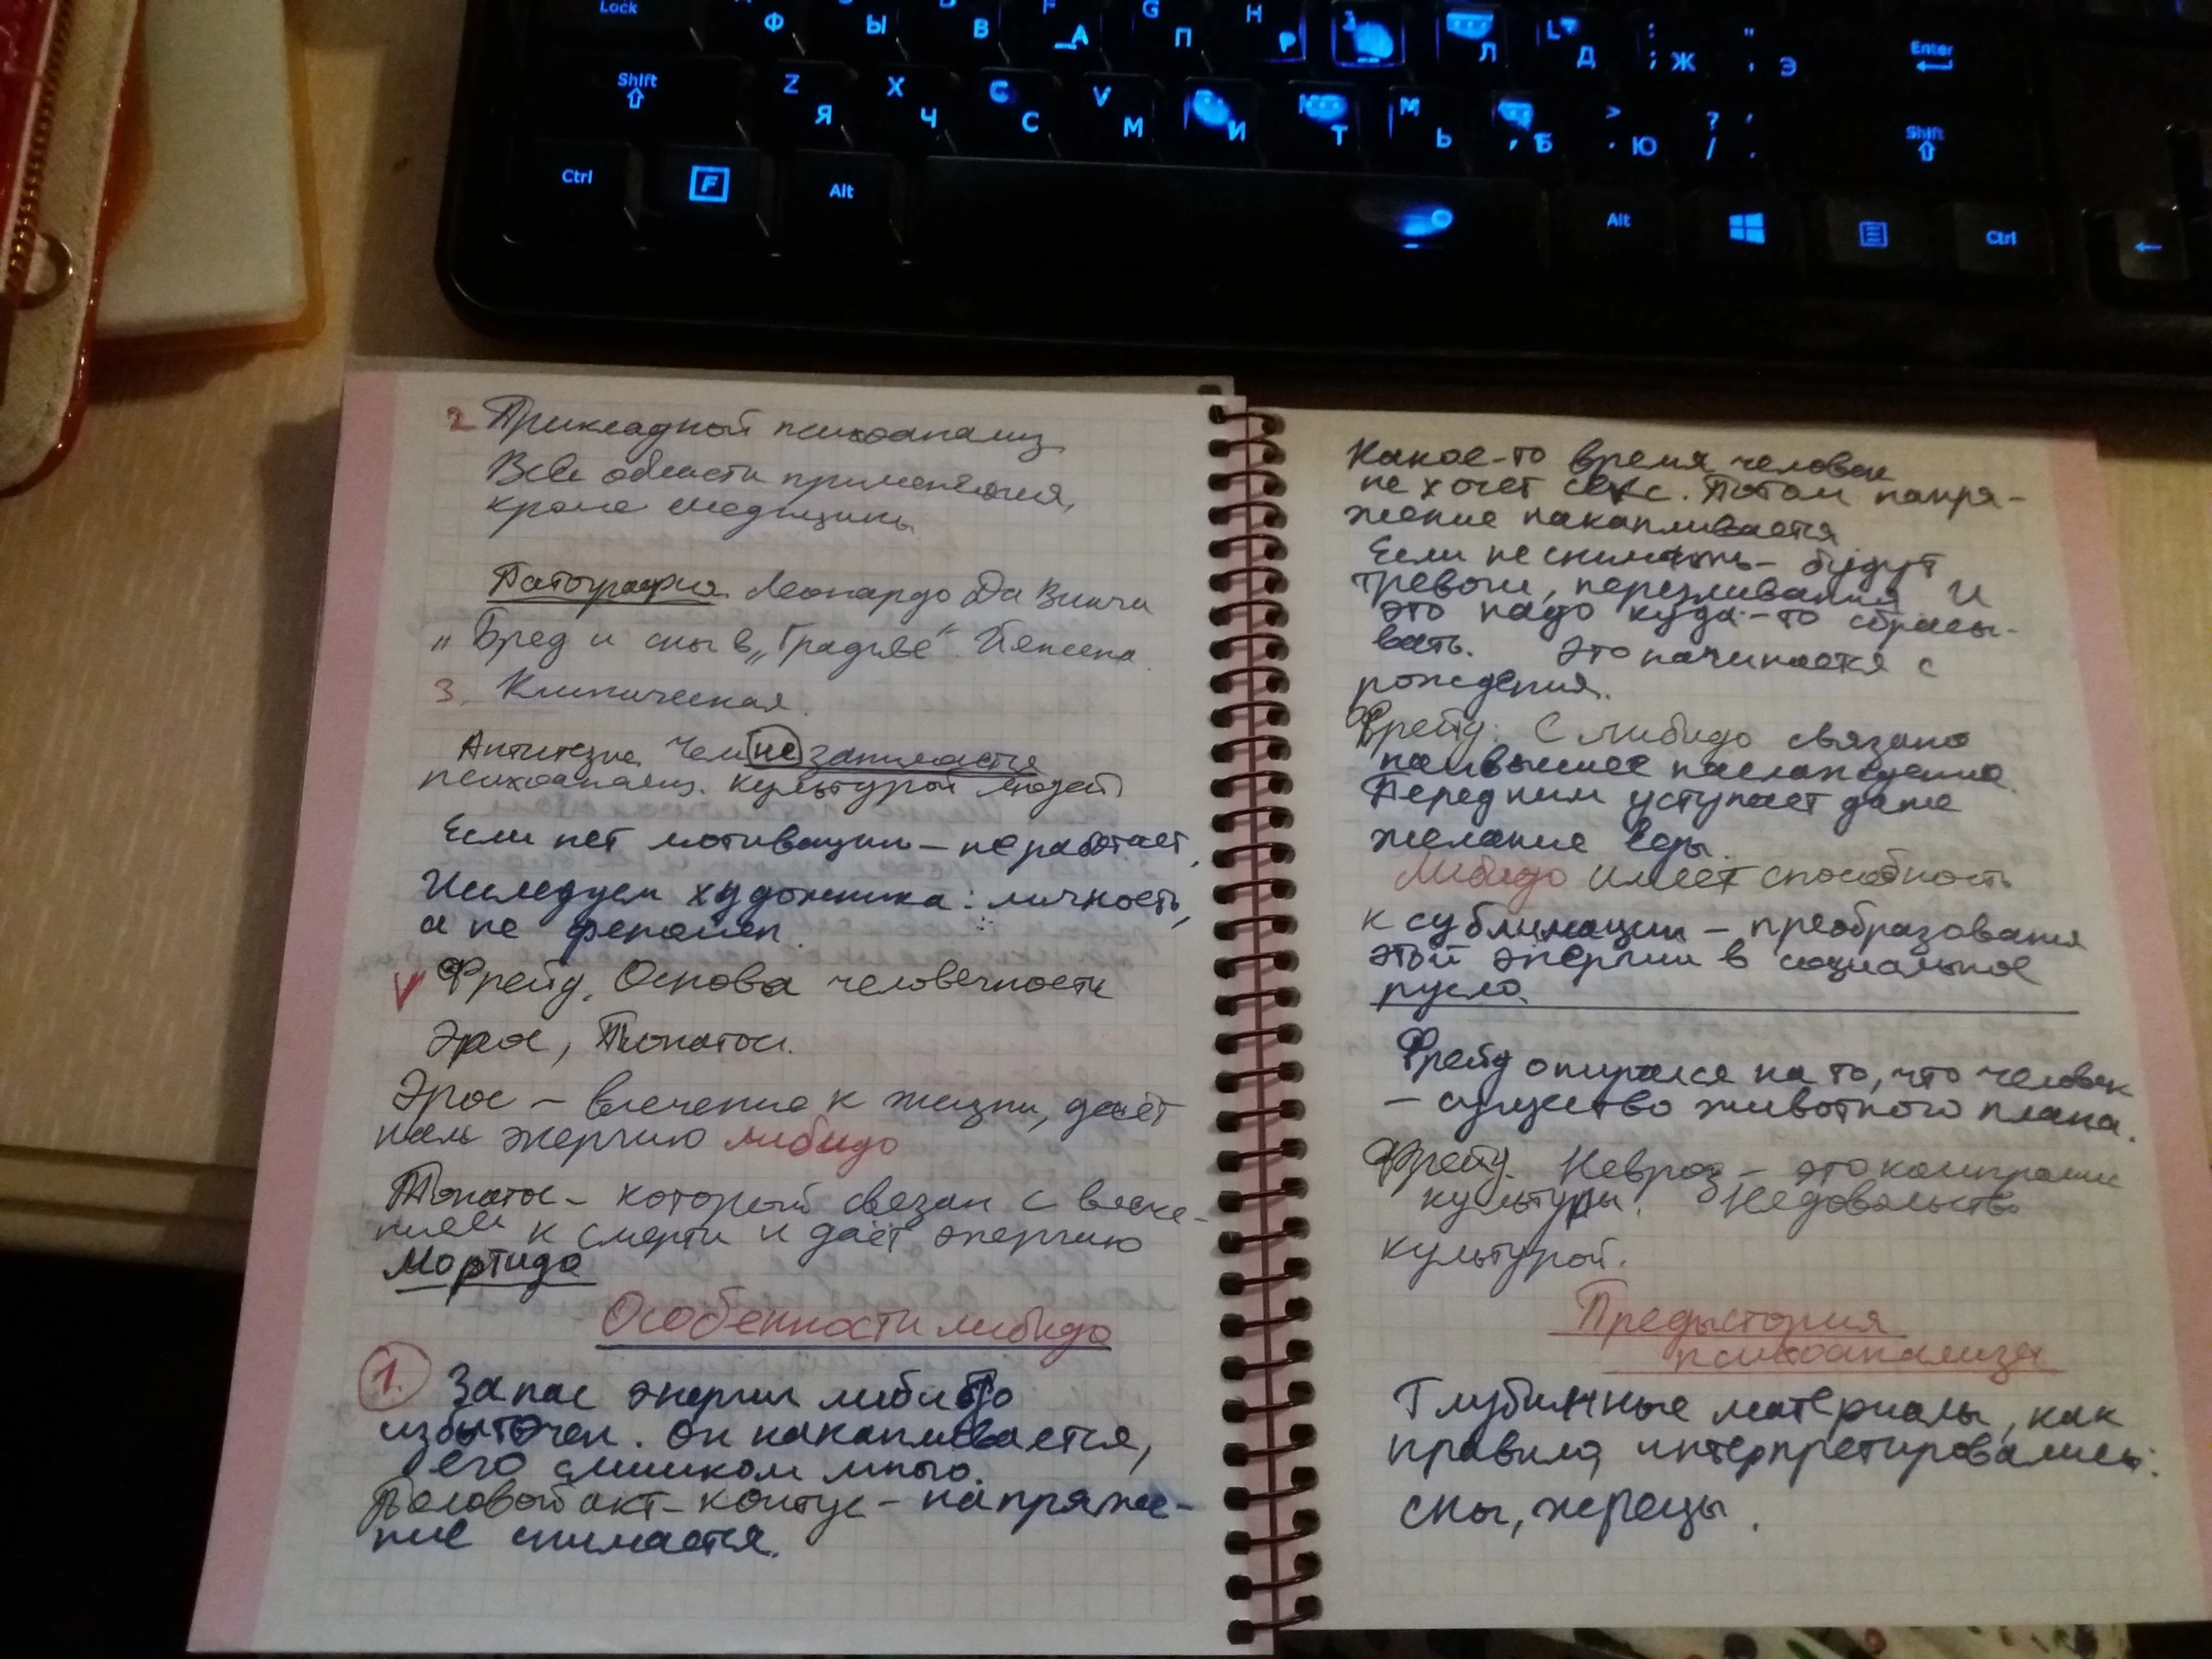 Lock Ф Ы В F А G П H Р J Л L Д : ; Ж " ' Э Enter
Shift Z Я X Ч C С V М И Т М Ь , Б > . Ю ? / , . Shift
Ctrl F Alt Alt Ctrl
2 Прикладной психоанализ
Все области применения,
кроме медицины
Патография Леонардо Да Винчи
„ Бред и сны в „Градиве" Йенсена.
3. Клиническая.
Антитезис Чем не занимается
психоанализ. культурой людей
Если нет мотивации – не работает,
Исследуем художника: личность,
а не феномен.
V Фрейд. Основа человечности
Эрос, Танатос.
Эрос – влечение к жизни, даёт
нам энергию либидо
Танатос – который связан с влече-
нием к смерти и даёт энергию
Мортидо
Особенности либидо
1. Запас энергии либидо
избыточен. Он накапливается,
его слишком много.
Половой акт – коитус – напряже-
ние снимается.
Какое-то время человек
не хочет секс. Потом напря-
жение накапливается
Если не снимать – будут
тревоги, переживания И
это надо куда-то сбрасы-
вать. Это начинается с
рождения.
Фрейд: С либидо связано
наивысшее наслаждение.
Перед ним уступает даже
желание еды.
Либидо имеет способность
к сублимации – преобразования
этой энергии в социальное
русло.
Фрейд опирался на то, что человек
– существо животного плана.
Фрейд. Невроз – это компромис
культуры. Недовольство
культурой.
Предыстория
психоанализа
Глубинные материалы, как
правило, интерпретировались:
сны, жрецы.